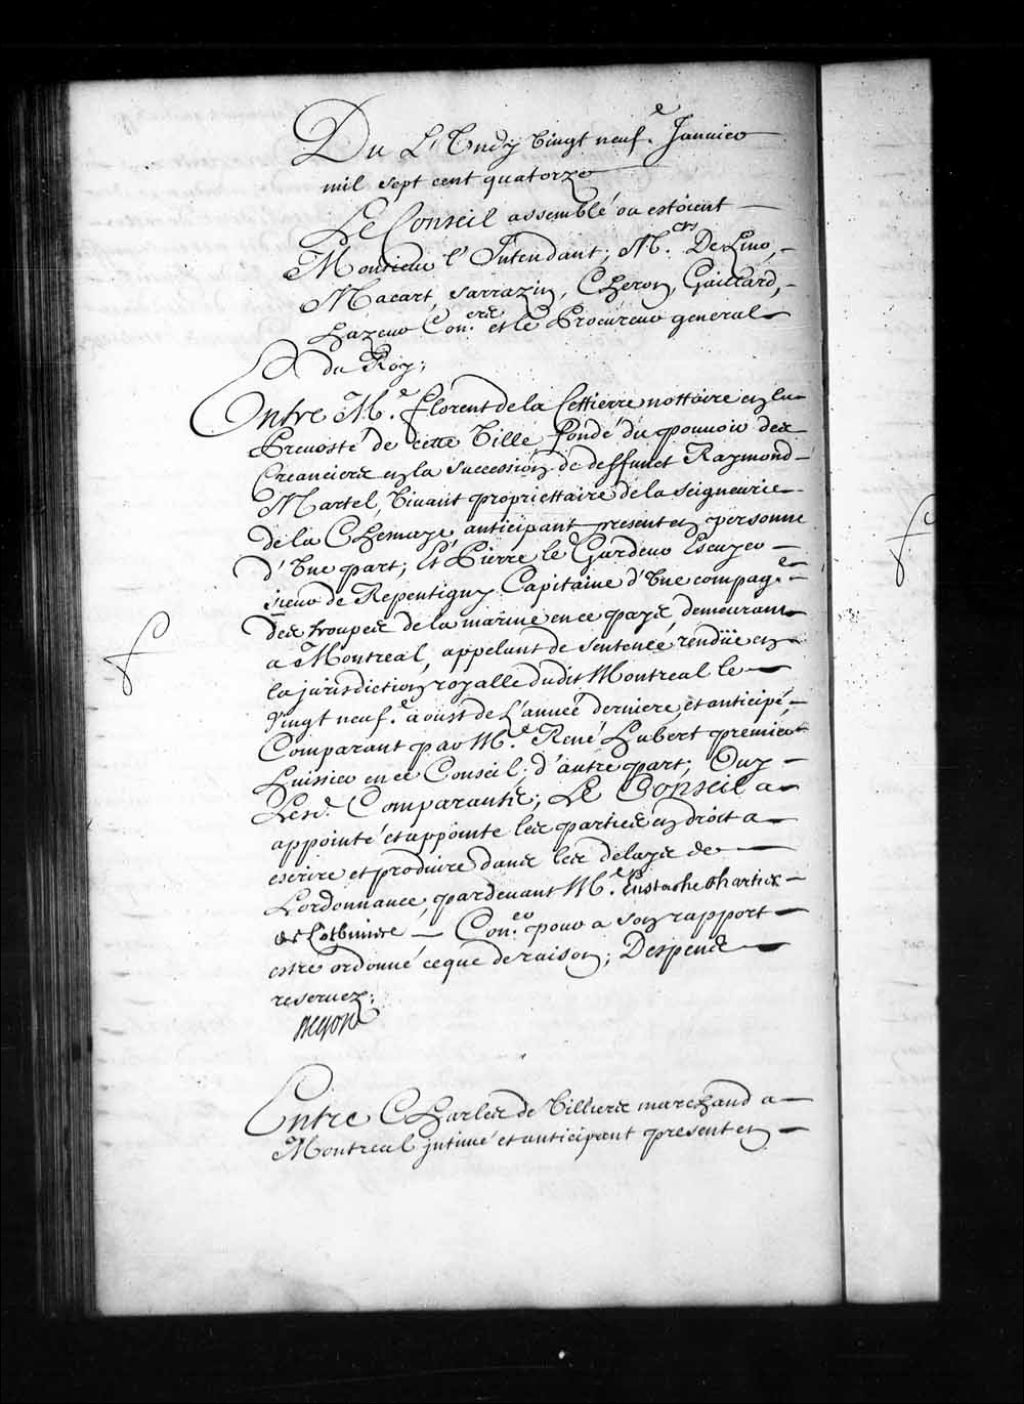 Du Lundy vingt neuf.e Janvier
mil sept cent quatorze
Le Conseil assemblé ou estoient
Monsieur l'Intendant, M.ers De Lino,
Macart, Sarrazin, Cheron, Gaillard,
hazeur Con.ers et le Procureur general
du Roy;
Entre M.e florent de la Cettierre nottaire en la
Prevosté de cette Ville fondé du pouvoir des
Creanciers en la succession de deffunct Raymond
Martel, Vivant propriettaire de la seigneurie
de la Chenaye, anticipant present en personne
d'Une part; Et Pierre le Gardeur Escuyer
sieur de Repentigny Capitaine d'Une compag.e
des troupes de la marine en ce pays, demeurant
a Montreal, appelant de sentence rendüe en
la jurisdiction royalle dudit Montreal le
Vingt neuf.e aoust de L'année derniere, et anticipé,
Comparant par M.e René hubert premier
huissier en ce Conseil; d'autre part; Ouy
Lesd. Comparants; Le Conseil a
appointé et appointe les parties en droit a
escrire et produire dans les delays de
L'ordonnance, pardevant M.e Eustache Chartier
de Lotbiniere Con.er pour a son rapport
estre ordonné ce que de raison; Despens
reservez;
Begon
Entre Charles de Villiers marchand a
Montreal intimé et anticipant present en